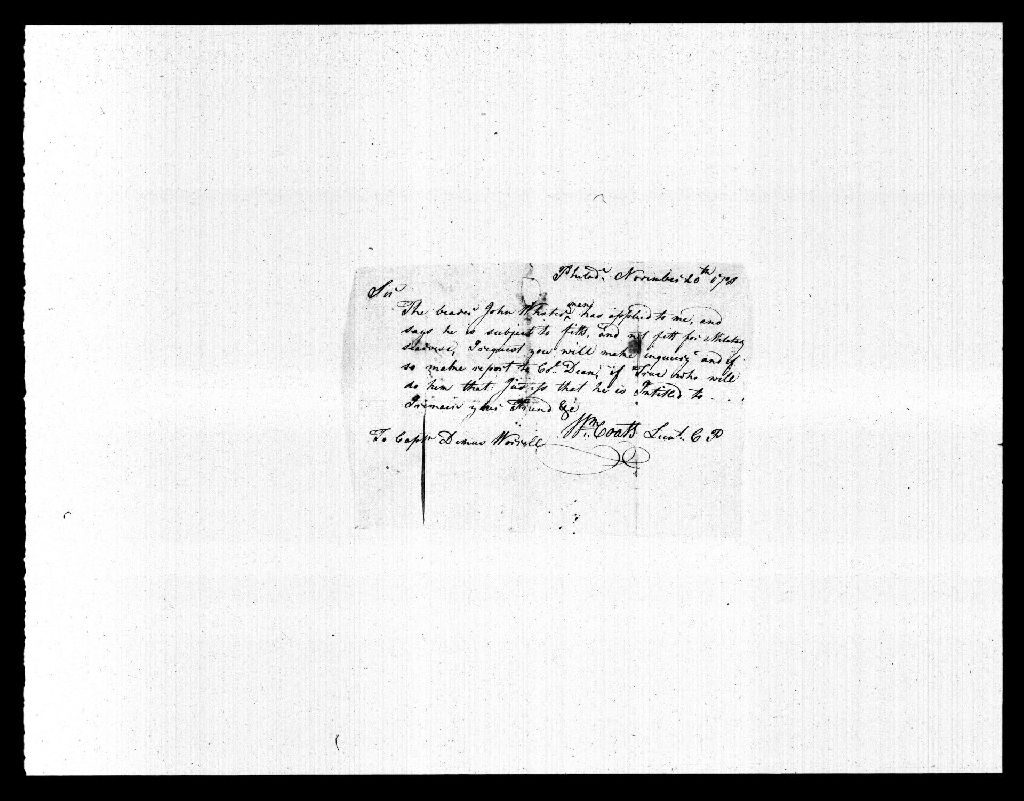 Philad. November 20th
Sir
The bearer John has applied to me, and
says he is subject to fitts, and not fitt for Militery
I request you will make inquiry and if
so make report to Col. Dean, if True who will
do him that Justiss that he is Intitled to
I remain your Friend &c
Wm. Coats Lieut. C P
To Captn Worrell